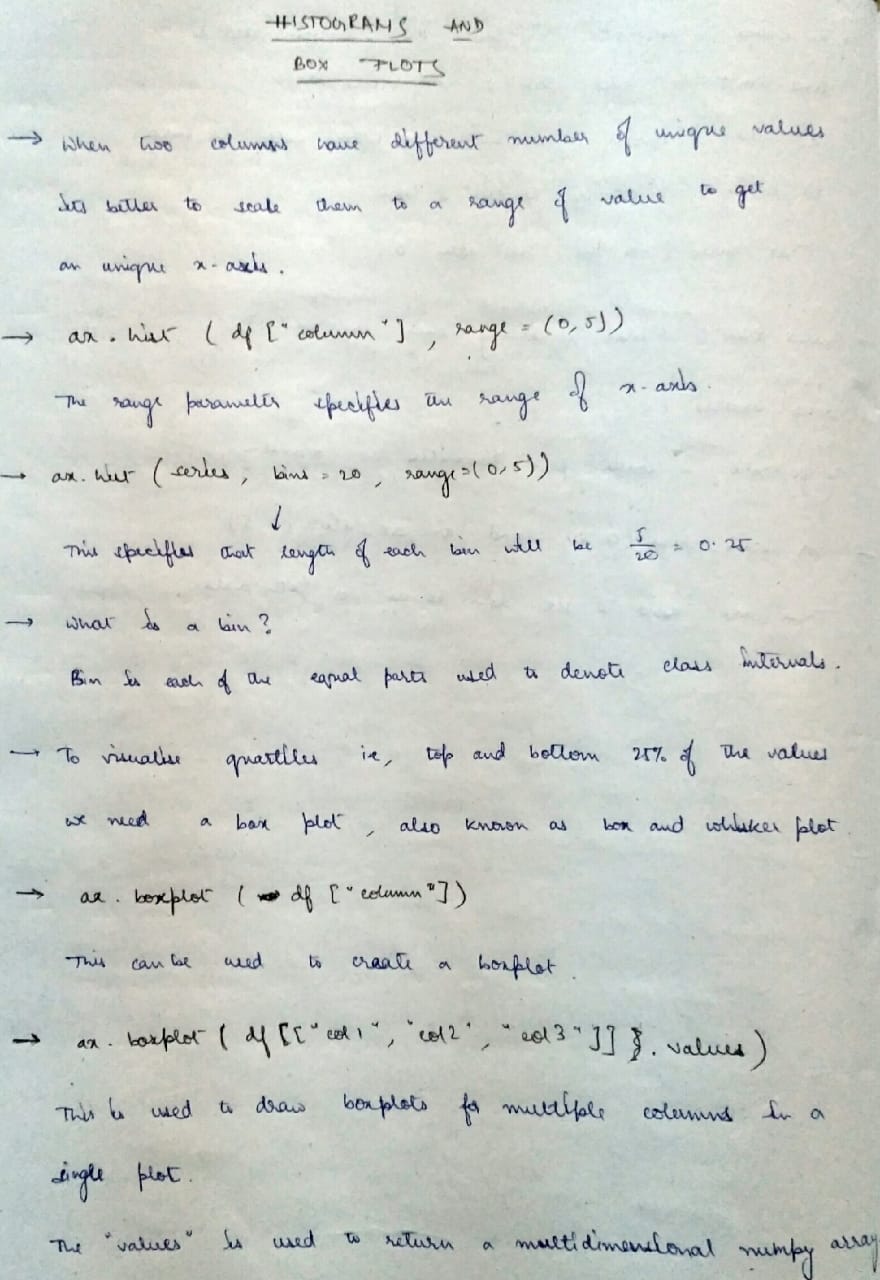 HISTOGRAMS AND
BOX PLOTS
→ When two columns have different number of unique values
its better to scale them to a range of value to get
an unique x-axis.
→ ax.hist ( df ["column"] , range = (0,5))
The range parameter specifies the range of x-axis.
→ ax.hist (series, bins = 20 , range=(0,5))
↓
This specifies that length of each bin will be 5/20 = 0.25
→ What is a bin?
Bin is each of the equal parts used to denote class intervals.
→ To visualise quartiles ie, top and bottom 25% of the values
we need a box plot , also known as box and whisker plot.
→ ax.boxplot ( df ["column"])
This can be used to create a boxplot.
→ ax.boxplot ( df [["col1", "col2", "col3"]] .values)
This is used to draw boxplots for multiple columns in a
single plot.
The "values" is used to return a multidimensional numpy array